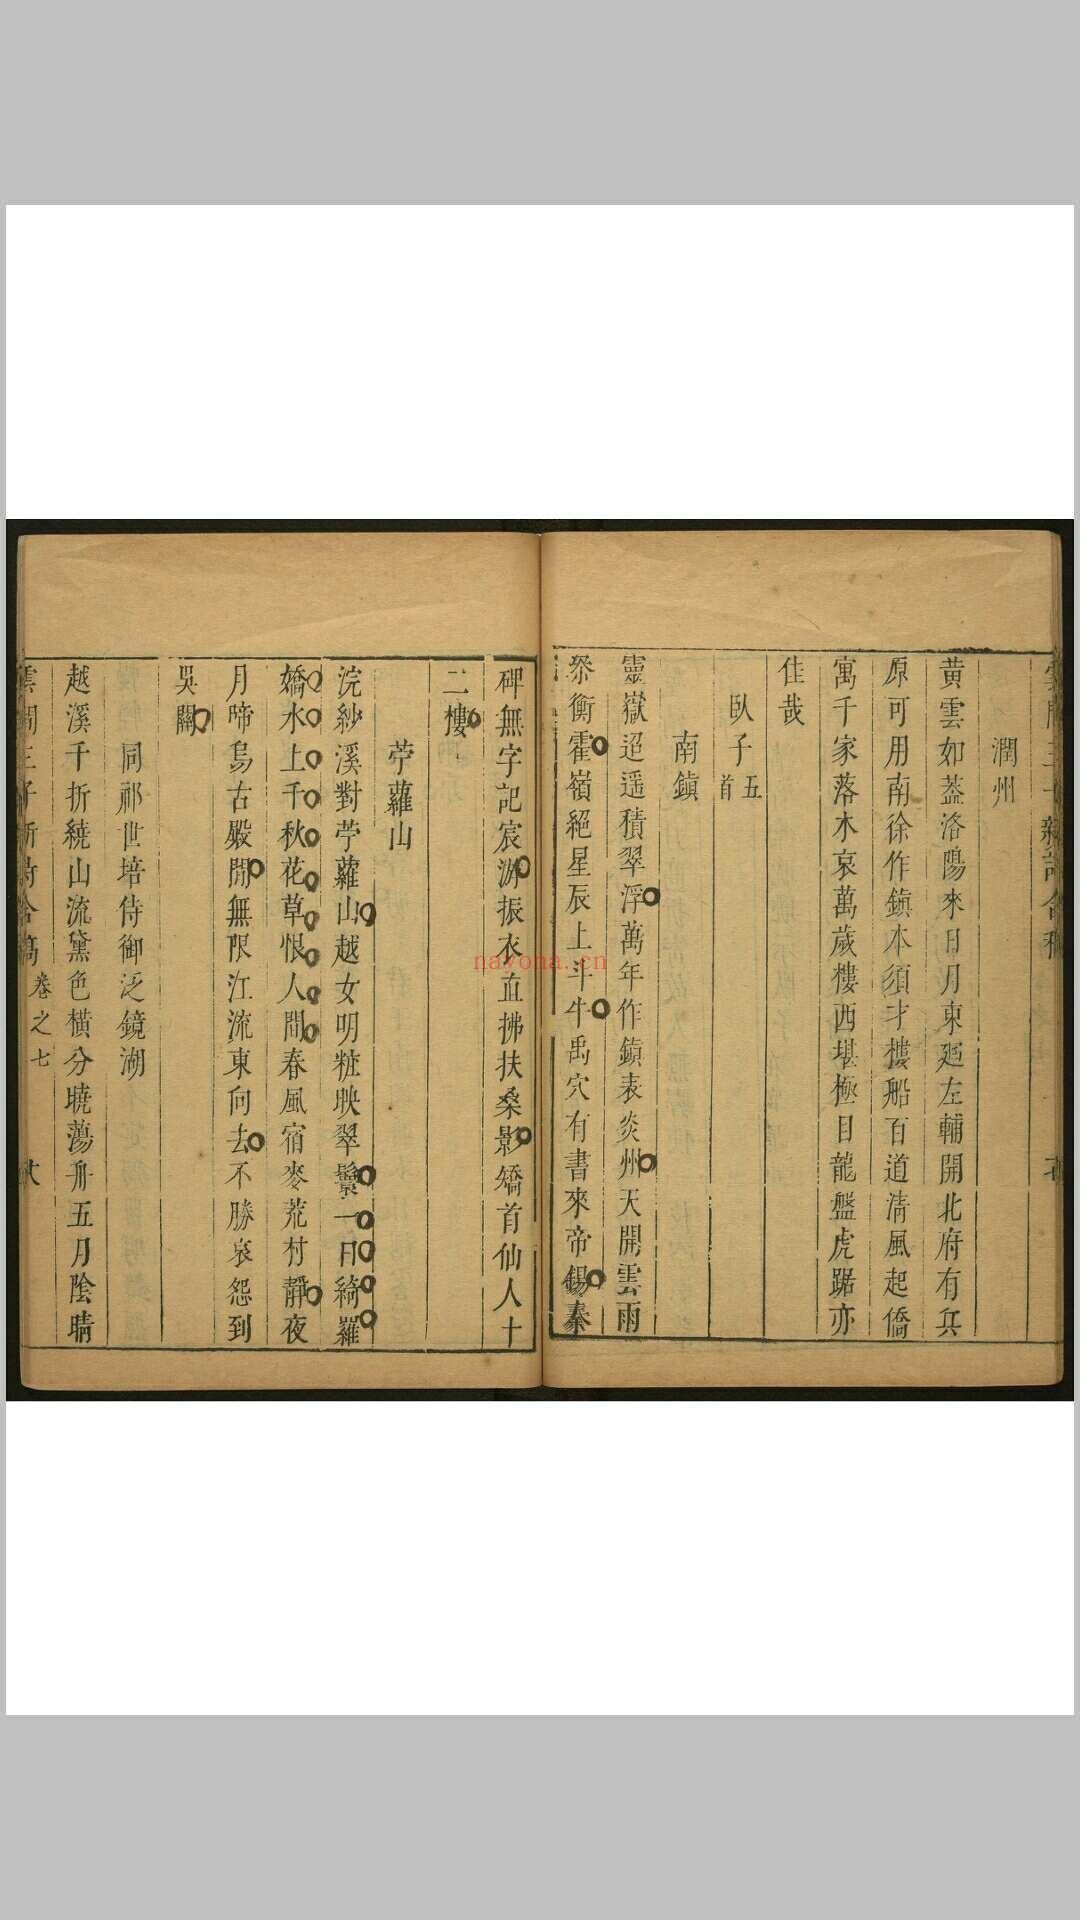 潤州
黄雲如蓋洛陽來日月東廻左輔開北府有兵
原可用南徐作鎮本須才樓船百道清風起僑
寓千家落木哀萬歲樓西堪極目龍盤虎踞亦
佳哉
臥子五首
南鎮
靈嶽迢遥積翠浮萬年作鎮表炎州天開雲雨
叅衡霍嶺絕星辰上斗牛禹穴有書來帝錫秦
碑無字記宸游振衣直拂扶桑影矯首仙人十
二樓
苧蘿山
浣紗溪對苧蘿山越女明粧映翠鬟一日綺羅
嬌水上千秋花草恨人間春風宿麥荒村靜夜
月啼烏古殿閒無限江流東向去不勝哀怨到
吳關
同祁世培侍御泛鏡湖
越溪千折繞山流黛色橫分曉蕩舟五月陰晴
雲間三子新詩合稿 卷之七
nayona.cn